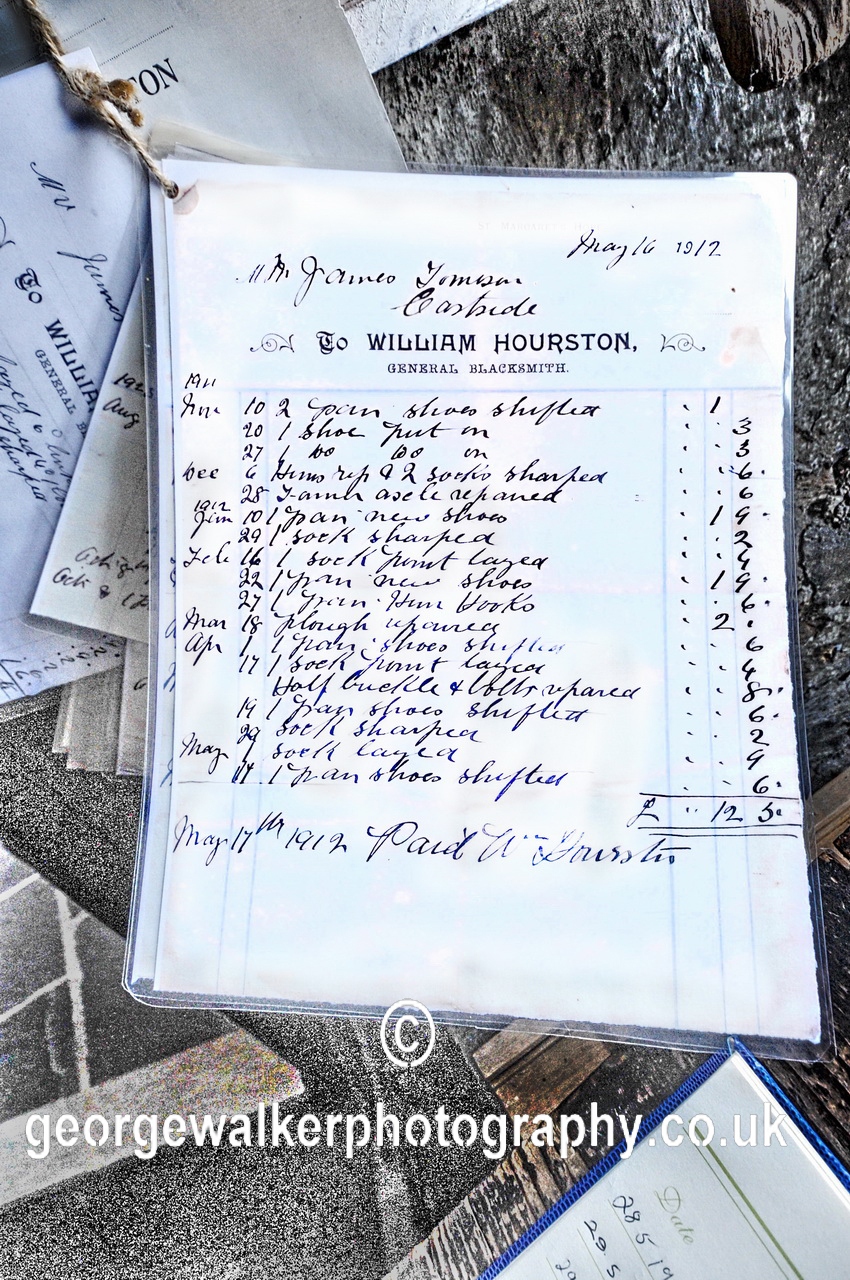 TON
May 16 1912
Mr James Tomison
Eastside
To WILLIAM HOURSTON,
GENERAL BLACKSMITH.
1911
10 2 pair shoes shifted 1
20 1 shoe put on 3
27 1 Do Do on 3
Dec 6 rep & 2 socks sharped 6
28 axele repaired 6
1912
Jan 10 1 pair new shoes 1 9
29 1 sock sharped 2
Feb 16 1 sock point layed 4
22 1 pair new shoes 1 9
27 1 pair Hooks 6
Mar 18 plough repaired 2
Apr 1 1 pair shoes shifted 6
17 1 sock point layed 4
Half buckle & bolts repaired 8
19 1 pair shoes shifted 6
29 sock sharped 2
May 7 sock layed 9
14 1 pair shoes shifted 6
£ 12 5
May 17th 1912 Paid Wm Hourston
Mr James
To WILLIA
GENERAL B
Aug
©
georgewalkerphotography.co.uk
Date
28.5.19
29.5